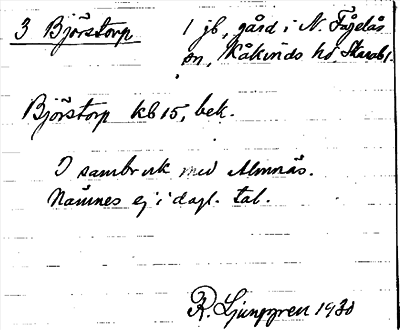 3 Björstorp 1 jb, gård i N. Fågelås
sn, Kåkinds hd, Skarab l.
Björstorp kb 15, bek.
I sambruk med Almnäs.
Nämnes ej i dagl. tal.
R. Ljunggren 1930